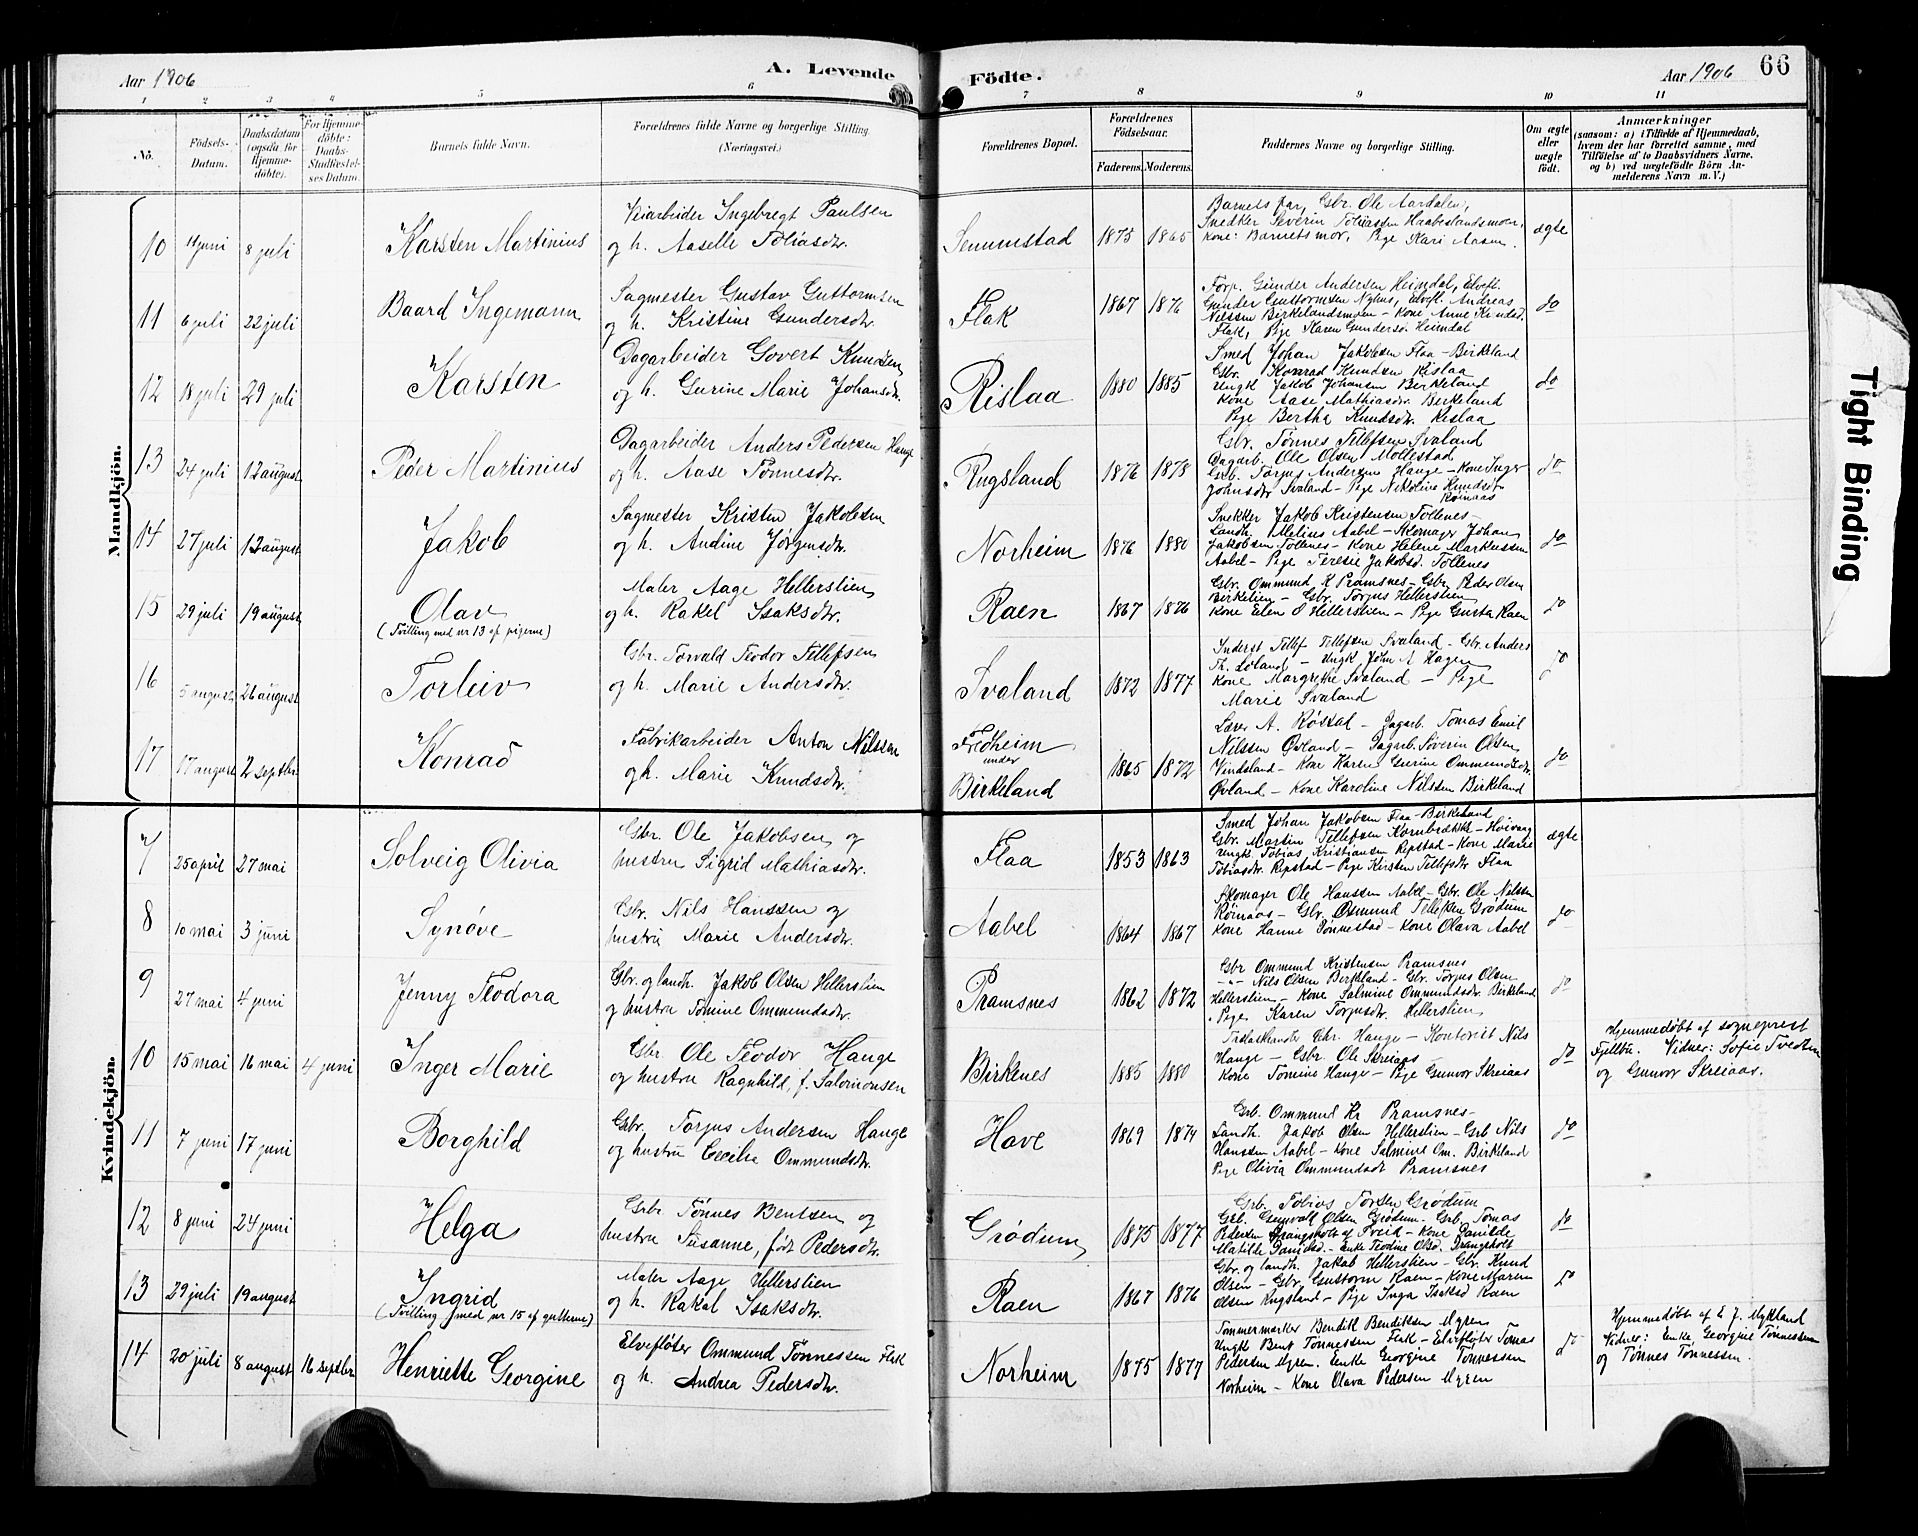 Aar 1906
A. Levende
Födte.
Aar 1906 66
1 2 3 4 5 6 7 8 9 10 11
No.
Födsels-Datum.
Daabsdatum (ogsaa for Hjemme-döbte).
For Hjemme-döbte: Daabs-Stadfæstel-ses Datum.
Barnets fulde Navn.
Forældrenes fulde Navne og borgerlige Stilling. (Næringsvei.)
Forældrenes Bopæl.
Forældrenes Födselsaar.
Faderens. Moderens.
Faddernes Navne og borgerlige Stilling.
Om ægte eller uægte födt.
Anmærkninger
(saasom: a) i Tilfælde af Hjemmedaab,
hvem der har forrettet samme, med
Tilföielse af to Daabsvidners Navne,
og b) ved uægtefödte Börn An-
melderens Navn m. V.)
Mandkjön.
10 11 juni 8 juli Karsten Martinius
Veiarbeider Ingebregt Paulsen
og h. Aaselle Tobiasdtr.
Senumstad 1875 1865
Barnets far, Gbr. Ole Aardalen,
Snedker Severin Tobiassen Haabeslandsmoen,
Kone: Barnets mor, Pige Kari Aasen.
ægte
11 6 juli 22 juli Baard Ingemann
Sagmester Gustav Guttormsen
og h. Kristine Gundersdtr.
Flak 1867 1876
Forp. Gunder Andersen Heimdal, Elvefl.
Gunder Guttormsen Nyhus, Elvefl. Andreas
Nilssen Birkelandsmoen - Kone Anne Knudsd.
Flak, Pige Karen Gundersd. Heimdal
do
12 18 juli 29 juli Karsten
Dagarbeider Govert Knudsen
og h. Gurine Marie Johansdtr.
Rislaa 1880 1885
Smed Johan Jakobsen Flaa - Birkeland
Gbr. Konrad Knudsen Rislaa
Ungk Jakob Johansen Birkeland
Kone Aase Mathiasdtr. Birkeland
Pige Bertha Knudsdtr Rislaa
do
13 24 juli 12 august Peder Martinius
Dagarbeider Anders Pedersen Hauge
og h. Aase Tønnesdtr.
Rugsland 1876 1878
Gbr. Tønnes Tellefsen Svaland
Dagarb. Ole Olsen Mollestad
Grb. Torjus Andersen Hauge - Kone Inger
Johnsdtr Svaland - Pige Nikoline Knudsdtr
Røinaas
do
14 27 juli 12 august Jakob
Sagmester Kristen Jakobsen
og h. Andine Jørgensdtr.
Norheim 1876 1880
Snekker Jakob Kristensen Tollenes -
Landh. Melius Aabel - Skomager Johan
Jakobsen Tollenes - Kone Helene Markussen
Aabel - Pige Teresie Jakobsd. Tollenes
do
15 29 juli 19 august Olav
(Tvilling med nr 13 af pigerne)
Maler Aage Hellerslien
og h. Rakel Isaksdtr.
Raen 1867 1876
Gbr. Ommund K Pramsnes - Gbr. Peder Olsen
Birkelien - Gbr. Torjus Hellerslien
Kone Elen O Hellerslien - Pige Gusta Raen
do
16 5 august 26 august Torleiv
Gbr. Torvald Teodor Tellefsen
og h. Marie Andersdtr.
Svaland 1872 1877
Inderst Tellef Tellefsen Svaland - Gbr. Anders
Th. Løland - Ungk John A Hagen
Kone Margrethe Svaland - Pige
Marie Svaland
do
17 17 august 2 septbr Konrad
Fabrikarbeider Anton Nilssen
og h. Marie Knudsdtr.
Fredheim
under
Birkeland
1865 1872
Lærer A. Røstad - Dagarb. Tomas Emil
Nilssen Øvland - Dagarb. Severin Olsen
Vindsland - Kone Karen Gurine Ommundsdtr.
Øvland - Kone Karoline Nilssen Birkeland
do
Kvindekjön.
7 25 april 27 mai Solveig Olivia
Gbr. Ole Jakobsen og
hustru Sigrid Mathiasdtr.
Flaa 1853 1863
Smed Johan Jakobsen Flaa - Birkeland
Gbr. Martin Tellefsen Kornbrække - Høivaag
Ungk. Tobias Kristiansen Repstad - Kone Marie
Tobiasdtr. Repstad - Pige Kirsten Tellefsdtr Flaa
ægte
8 10 mai 3 juni Synøve
Gbr. Nils Hanssen og
hustru Marie Andersdtr.
Aabel 1864 1867
Skomager Ole Hanssen Aabel - Gbr. Ole Nilssen
Røinaas - Gbr. Osmund Tellefsen Grødum
Kone Hanne Tønnestad - Kone Olava Aabel
do
9 27 mai 4 juni Jenny Teodora
Gbr. og landh. Jakob Olsen Hellerslien
og hustru Tomine Ommundsdtr.
Pramsnes 1862 1872
Gbr Ommund Kristensen Pramsnes
-"- Nils Olsen Birkeland - Gbr. Torjus Olsen
Hellerslien - Kone Salmine Ommundsdtr. Birkeland
Pige Karen Torjusdtr. Hellerslien
do
10 15 mai 16 mai 4 juni Inger Marie
Gbr Ole Teodor Hauge
og hustru Ragnhild, f. Salomonsen
Birkenes 1885 1880
Trælasthandler Chr. Hauge - Kontorist Nils
Hauge - Gbr. Ole Skreiaas
Kone Tomine Hauge - Pige Gunvor Skreiaas
do
Hjemmedøbt af sogneprest
Fjelbu. Vidner: Sofie Tvedten
og Gunvor Skreiaas.
11 7 juni 17 juni Borghild
Gbr. Torjus Andersen Hauge
og hustru Cecilie Ommundsdtr.
Have 1869 1874
Grb. Ommund Kr Pramsnes -
Landh. Jakob Olsen Hellerslien - Grb Nils
Hanssen Aabel - Kone Salmine Om. Birkeland
Pige Olivia Ommundsdt Pramsnes
do
12 8 juni 24 juni Helga
Grbr Tønnes Bentsen og
hustru Susanne, født Pedersdtr.
Grødum 1875 1877
Grb. Tobias Torsen Grødum
Grb. Gunvald Olsen Grødum. Grb. Tomas
Pedersen Drangsholt af Tveid - Kone
Matilde - Enke Teodine Olsd. Drangsholt
do
13 29 juli 19 august Ingrid
(Tvilling med nr 15 af gutterne)
Maler Aage Hellerslien
og h. Rakel Isaksdtr.
Raen 1867 1876
Gbr. og landh. Jakob Hellerslien - Gbr. Knud
Olsen - Gbr. Guttorm Raen - Kone Maren
Olsen Rugsland - Pige Inga Isaksd Raen
do
14 20 juli 8 august 16 septbr Henriette Georgine
Elvefløter Ommund Tønnessen Flak
og h. Andrea Pedersdtr.
Norheim 1875 1877
Tømmermerker Bendik Bendiksen Myren
Ungk Bent Tønnessen Flak - Elvefløter Tomas
Pedersen Myren. Enke Georgine Tønnessen
Norheim - Kone Olava Pedersen Myren
do
Hjemmedøbt af E J. Mykland
Vidner: Enke Georgine Tønnessen
og Tønnes Tønnessen.
Tight Binding